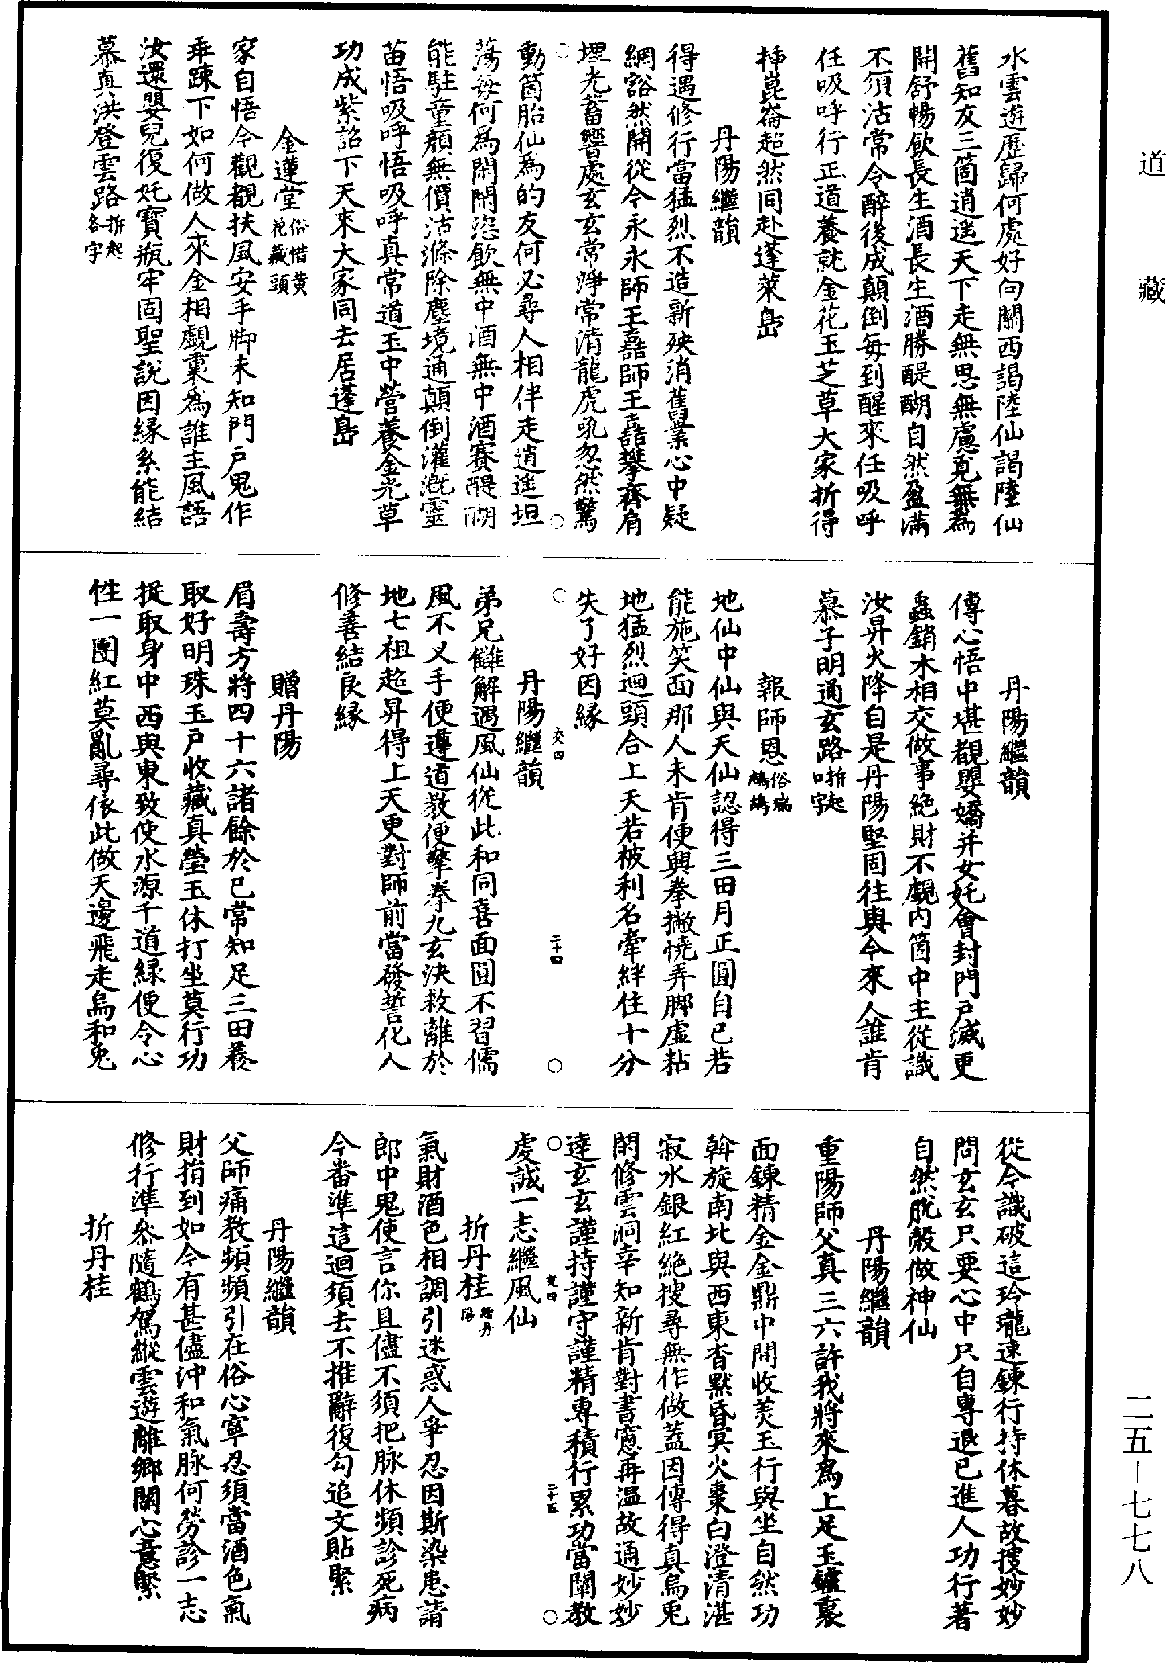 道藏
水雲遊歷歸何處好向關西謁陸仙謁陸仙
舊知友三箇逍遙天下走無思無慮覓無為
開舒暢飲長生酒長生酒勝醍醐自然盈滿
不須沽常令醉後成顛倒每到醒來任吸呼
任吸呼行正道養就金花玉芝草大家折得
揷崑崙超然同赴蓬萊島
丹陽繼韻
得遇修行當猛烈不造新殃消舊業心中疑
網豁然開從今永永師王嚞師王嚞攀齊肩
埋光蓄響處玄玄常淨常清龍虎吼忽然驚
動箇胎仙為的友何必尋人相伴走逍遙坦
蕩每何為閑閑恣飲無中酒無中酒賽醍醐
能駐童顏無價沽滌除塵境通顛倒灌溉靈
苗悟吸呼悟吸呼真常道玉中營養金光草
功成紫詔下天來大家同去居蓬島
金蓮堂俗惜黄花藏頭
家自悟令觀觀扶風安手脚未知門戶鬼作
乖踈下如何做人來金相覷裏為誰主風語
汝還嬰兒復奼寶瓶牢固聖說因緣系能結
慕真洪登雲路折起各字
丹陽繼韻
傳心悟中堪觀嬰嬌并女奼會封門戶滅更
蟲銷木相交做事絕財不覷內箇中主從識
汝昇火降自是丹陽堅固往與今來人誰肯
慕子明通玄路折起口字
報師恩俗瑞鷓鴣
地仙中仙與天仙認得三田月正圓自已若
能施笑面那人未肯便興拳撇憢弄脚虛粘
地猛烈迴頭合上天若被利名牽絆住十分
失了好因緣
丹陽繼韻
弟兄讎解遇風仙從此和同喜面圓不習儒
風不乂手便遵道教便擎拳九玄決救離於
地七祖超昇得上天更對師前當發誓化人
修善結良緣
贈丹陽
眉壽方將四十六諸餘於已常知足三田養
取好明珠玉戶收藏真瑩玉休打坐莫行功
捉取身中西與東致使水源千道緑便令心
性一團紅莫亂尋依此做天邊飛走烏和兔
從今識破這玲瓏速鍊行持休暮故搜妙妙
問玄玄只要心中只自專退已進人功行著
自然脫殼做神仙
丹陽繼韻
重陽師父真三六許我將來為上足玉鑪裏
面鍊精金金鼎中開收美玉行與坐自然功
斡旋南北與西東杳默昏冥火棗白澄清湛
寂水銀紅絶搜尋無作做蓋因傳得真烏兎
閑修雲洞幸知新肯對書窻再温故通妙妙
達玄玄謹持謹守謹精專積行累功當闡教
虔誠一志繼風仙
折丹桂贈丹陽
氣財酒色相調引迷惑人爭忍因斯染患請
郎中鬼使言你且儘不須把脉休頻診死病
今番準這迴須去不推辭復勾追文貼緊
丹陽繼韻
父師痛教頻頻引在俗心寧忍須當酒色氣
財捐到如今有甚儘沖和氣脉何勞診一志
修行準叅隨鶴駕縱雲遊離鄉關心意緊
折丹桂
二五－七七八